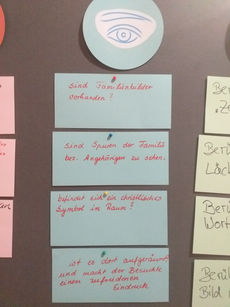 Sind Familienbilder
vorhanden?
Sind Spuren der Familie
bez. Angehörigen zu sehen.
befindet sich ein christliches
Symbol im Raum?
ist es dort aufgeräumt
und macht der Besuchte
einen zufriedenen
Eindruck
Berü
Berü
Läch
Berü
Wort
Berü
Bild